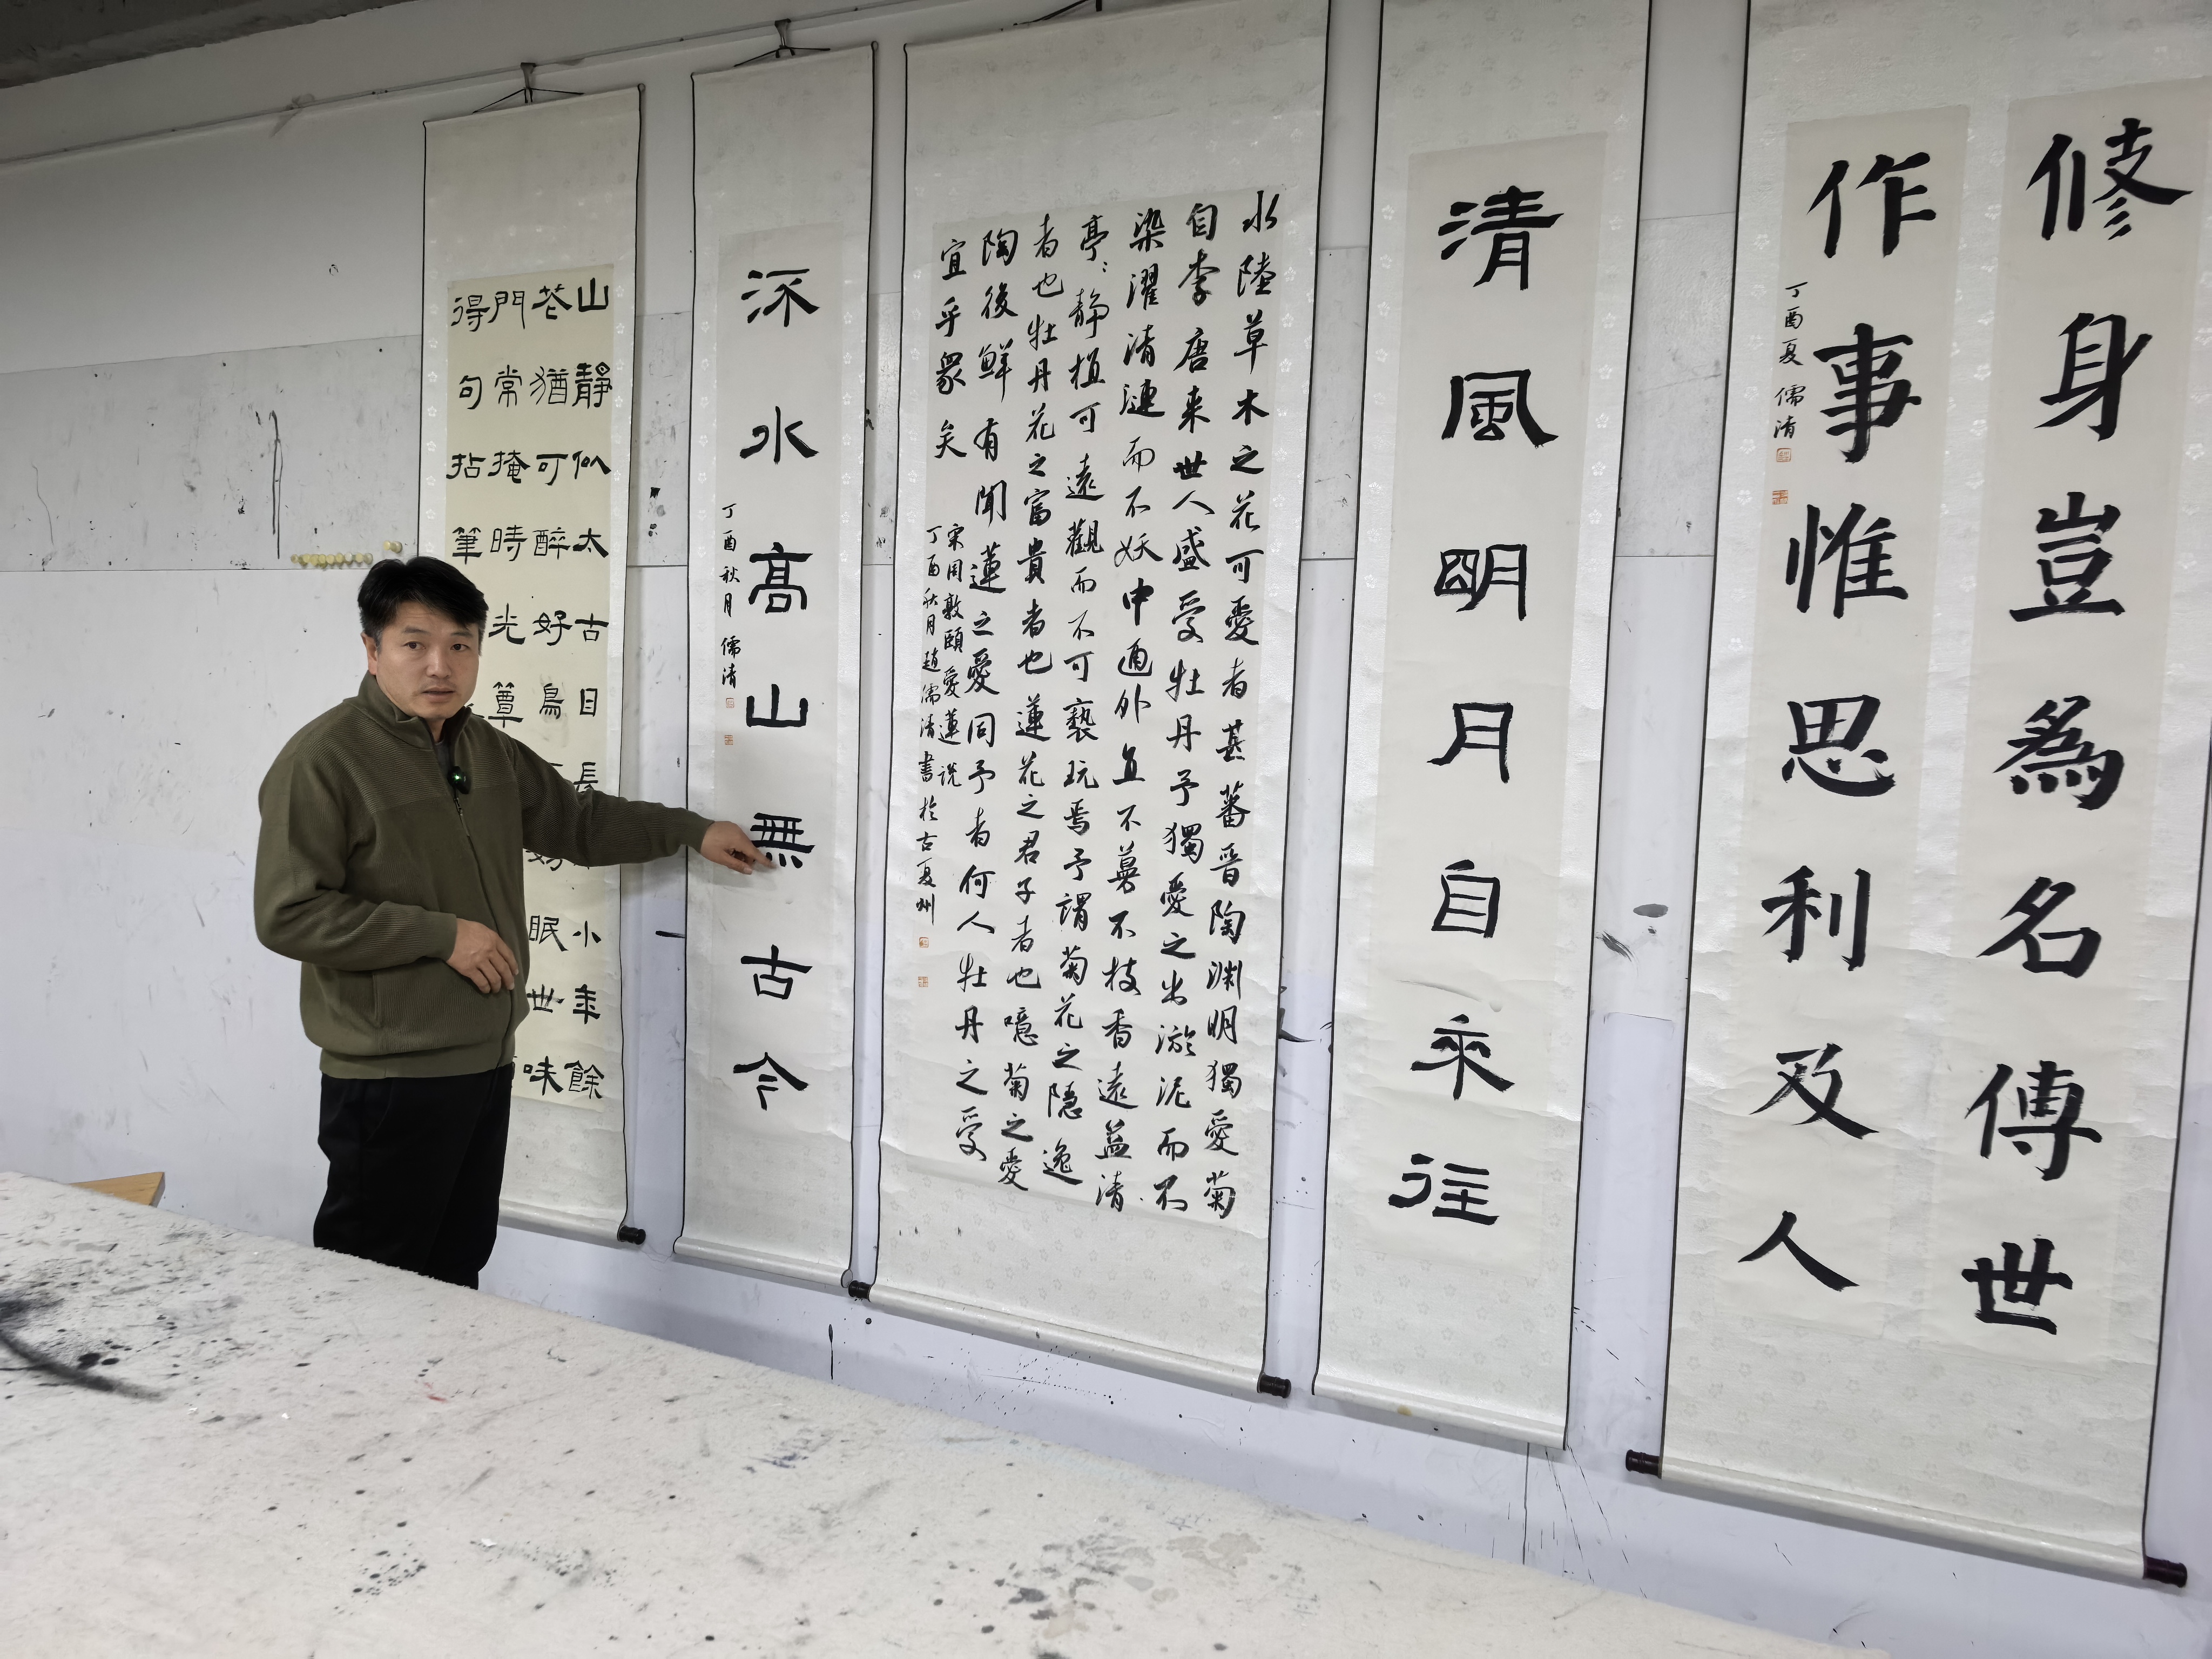 修身豈為名傳世
作事惟思利及人
丁酉夏 儒清
清風明月自來往
水陸草木之花可愛者甚蕃晉陶渊明獨愛菊
自李唐来世人盛愛牡丹予獨愛之出淤泥而不
染濯清漣而不妖中通外直不蔓不枝香遠益清
亭:静植可遠觀而不可褻玩焉予謂菊花之隱逸
者也牡丹花之富貴者也蓮花之君子者也噫菊之愛
陶後鮮有聞蓮之愛同予者何人牡丹之愛
宜乎衆矣
宋周敦頤愛蓮说
丁酉秋月趙儒清書於古夏州
流水高山無古今
丁酉秋月 儒清
山靜似太古日長小年餘
花猶可醉好鳥眠世味
門常掩時光簟
得句拈筆